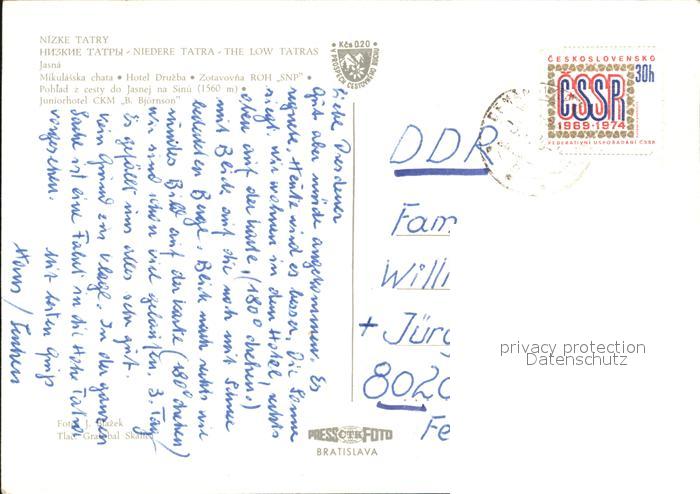 NÍZKE TATRY
НИЗКИЕ ТАТРЫ - NIEDERE TATRA - THE LOW TATRAS
Jasná
Mikulášska chata • Hotel Družba • Zotavovňa ROH „SNP" •
Pohľad z cesty do Jasnej na Sinú (1560 m) •
Juniorhotel CKM „B. Björnson"
Kčs 0,20
V PROSPECH CESTOVNÉHO RUCHU
ČESKOSLOVENSKO
30h
ČSSR
1969-1974
FEDERATIVNÍ USPOŘÁDÁNÍ ČSSR
Liebe Dresdener
Gut aber müde angekommen. Es
regnete. Heute wird es besser, die Sonne
siegt. Wir wohnen in dem Hotel, rechts
oben auf der Karte, (180° drehen.)
mit Blick auf die noch mit Schnee
bedeckten Berge. Blick nach rechts wie
Bild auf der Karte (180° drehen)
wir sind schon viel gelaufen. 3. Tag
Es gefällt uns alles sehr gut.
kein Grund zur Klage. In der ganzen
ist eine Fahrt in die Hohe Tatra
vorgesehen.
Mit besten Grüß
Hans /
DDR
Fam
Willi
+ Jürg
8020
Fe
privacy protection
Datenschutz
Foto J. Blažek
PRESS ČTK FOTO
BRATISLAVA